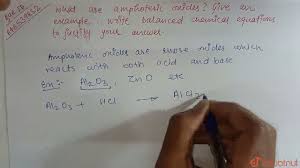 what are amphoteric oxides? Give an
example. Write balanced chemical equations
to justify your answer.
Amphoteric oxides are those oxides which
reacts with both acid and base
Ex:- Al2O3, ZnO etc
Al2O3 + HCl → AlCl3